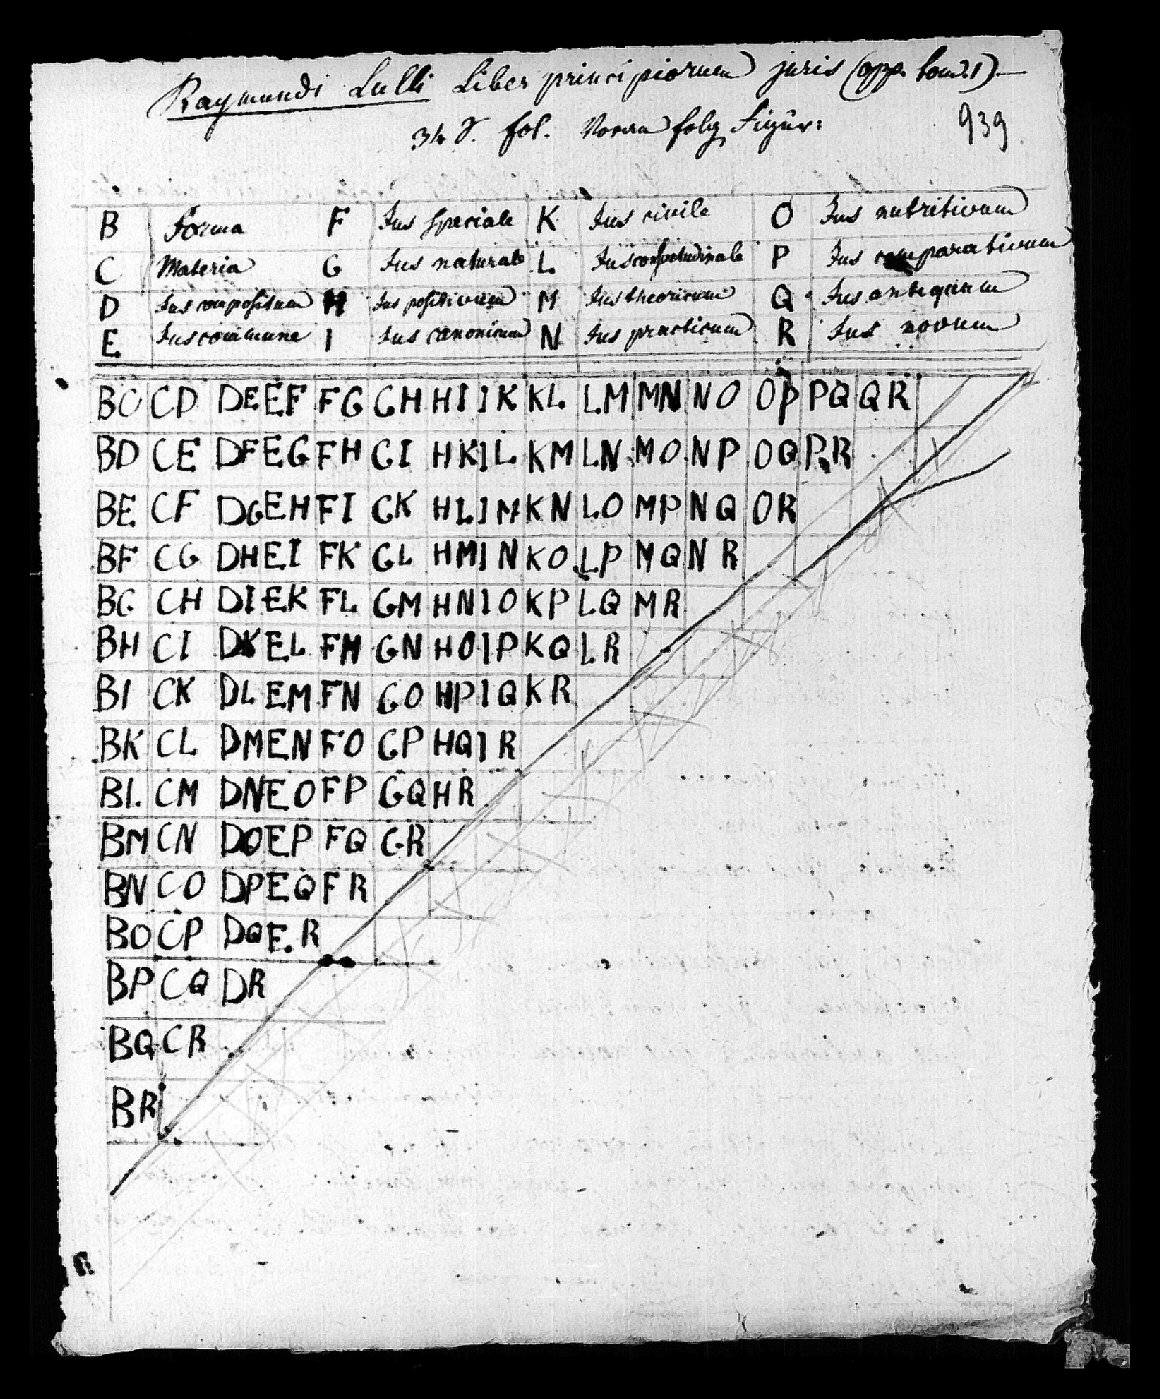 Raymundi Lulli Liber principiorum juris (opp. tom. 1) —
34 S. fol. Voran folg. Figur:
939
B Forma F Jus speciale K Jus civile O Jus nutritivum
C Materia G Jus naturale L Jus consuetudinale P Jus comparativum
D Jus compositum H Jus positivum M Jus theoricum Q Jus antiquum
E Jus commune I Jus canonicum N Jus practicum R Jus novum
BC CD DE EF FG GH HI IK KL LM MN NO OP PQ QR
BD CE DF EG FH GI HK IL KM LN MO NP OQ PR
BE CF DG EH FI GK HL IM KN LO MP NQ OR
BF CG DH EI FK GL HM IN KO LP MQ NR
BG CH DI EK FL GM HN IO KP LQ MR
BH CI DK EL FM GN HO IP KQ LR
BI CK DL EM FN GO HP IQ KR
BK CL DM EN FO GP HQ IR
BL CM DN EO FP GQ HR
BM CN DO EP FQ GR
BN CO DP EQ FR
BO CP DQ ER
BP CQ DR
BQ CR
BR